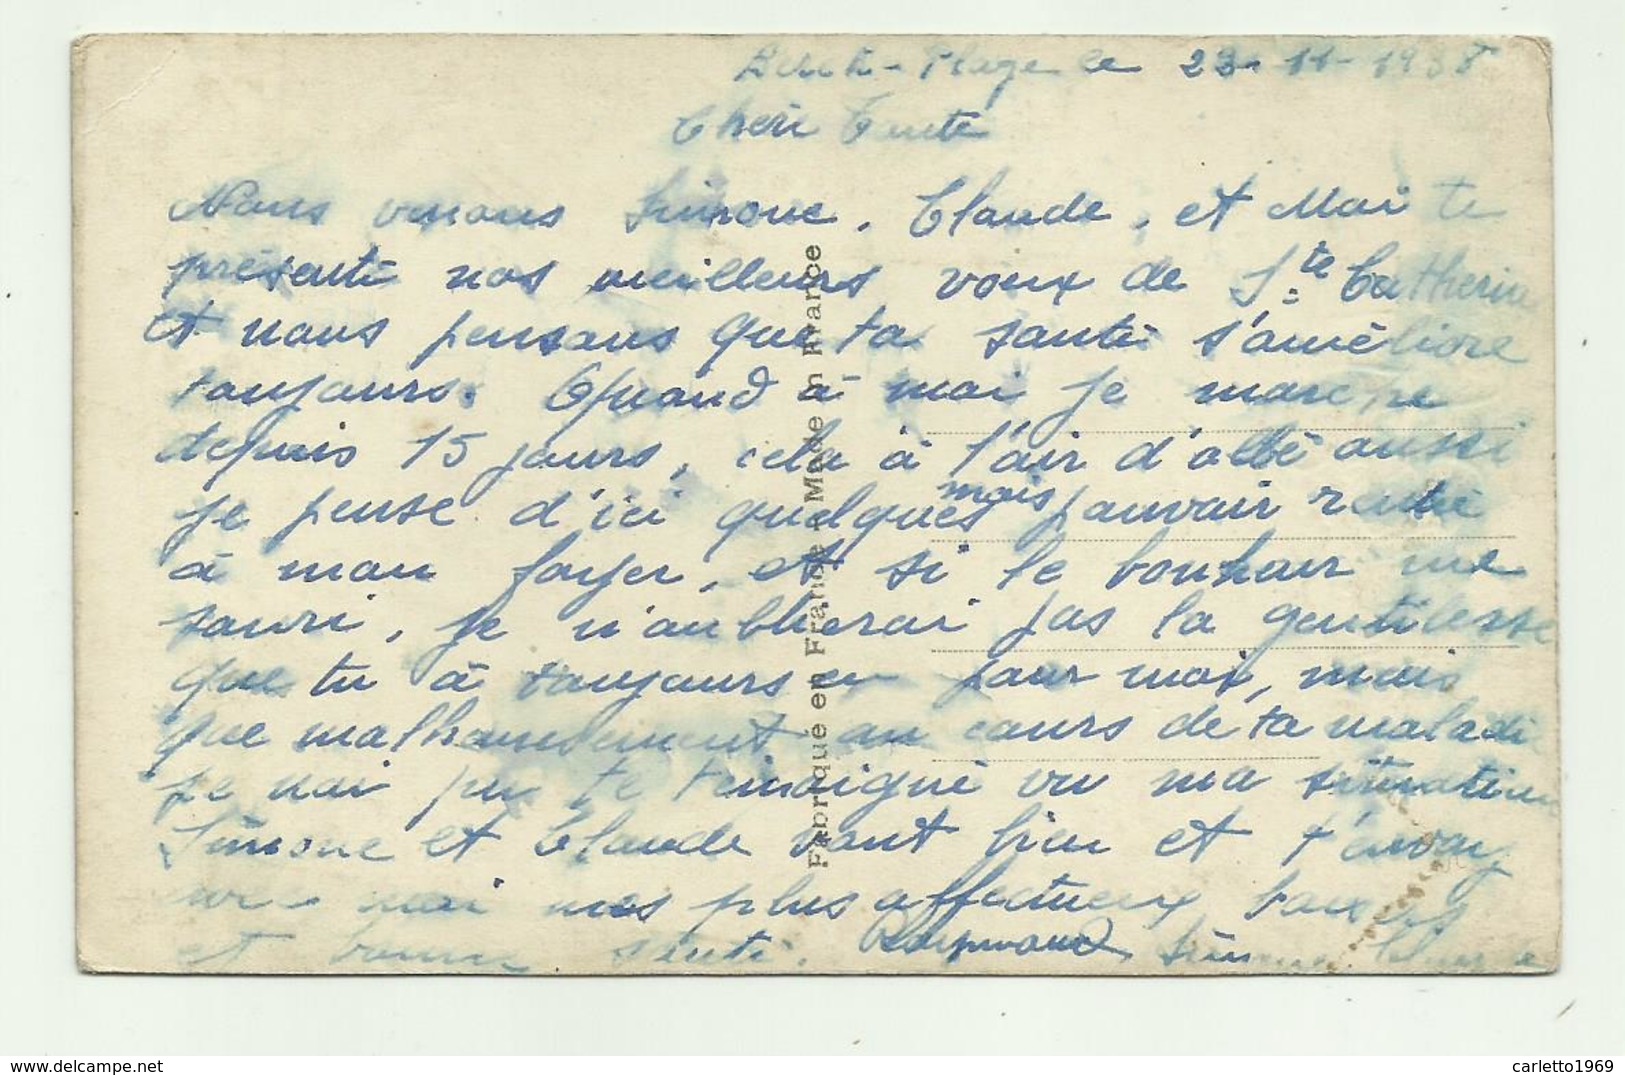 Berck-Plage le 23-11-1938
Chéri Tante
Nous venons Simone, Claude, et Moi te
présenté nos meilleurs voeux de Ste Catherine
et nous pensons que ta santé s'améliore
toujours. Quand à moi je marche
depuis 15 jours, cela à l'air d'allé aussi
je pense d'ici quelques mois pouvoir rentré
à mon foyer, et si le bonheur me
souri, je n'oublierai pas la gentilesse
que tu à toujours eu pour moi, mais
que malheureusement au cours de ta maladie
je nai pu te témoigné vu ma situation
Simone et Claude vont bien et t'envoy
avec moi nos plus affectueux baisers
et bonne santé. Raymond, Simone Claude
Fabriqué en France - Made in France
carletto1969